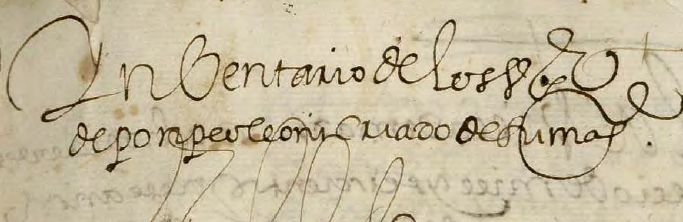 Ynbentario de los b^es
de ponpeo leoni criado de su mag^d.